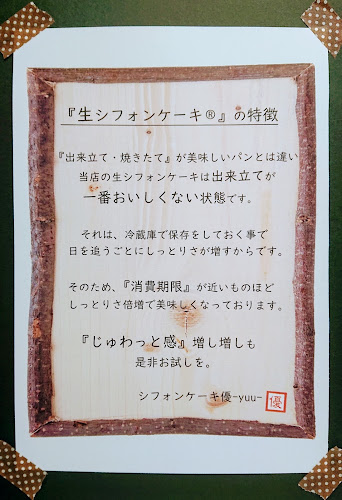 『生シフォンケーキ®』の特徴
『出来立て・焼きたて』が美味しいパンとは違い
当店の生シフォンケーキは出来立てが
一番おいしくない状態です。
それは、冷蔵庫で保存をしておく事で
日を追うごとにしっとりさが増すからです。
そのため、『消費期限』が近いものほど
しっとりさ倍増で美味しくなっております。
『じゅわっと感』増し増しも
是非お試しを。
シフォンケーキ優-yuu-
優